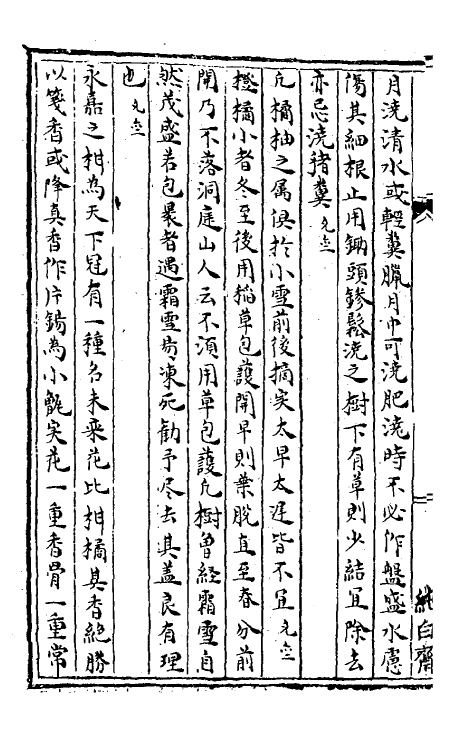 月洗清水或輕糞臘月中可澆肥澆時不必作盤盛水慮
傷其細根止用鋤頭鏒鬆澆之樹下有草則少結宜除去
亦忌澆猪糞
凡橘柚之属俱扵小雪前後摘实太早太遲皆不宜
橙橘小者冬至後用稲草包護開早則葉脫直至春分前
開乃不落洞庭山人云不須用草包護凡樹曽経霜雪自
然茂盛若包暴者遇霜雪易凍死勧予尽去其盖良有理
也
永嘉之柑為天下冠有一種名朱欒花比柑橘其香絶勝
以箋香或降真香作片錫為小甑实花一重香骨一重常
純白齋